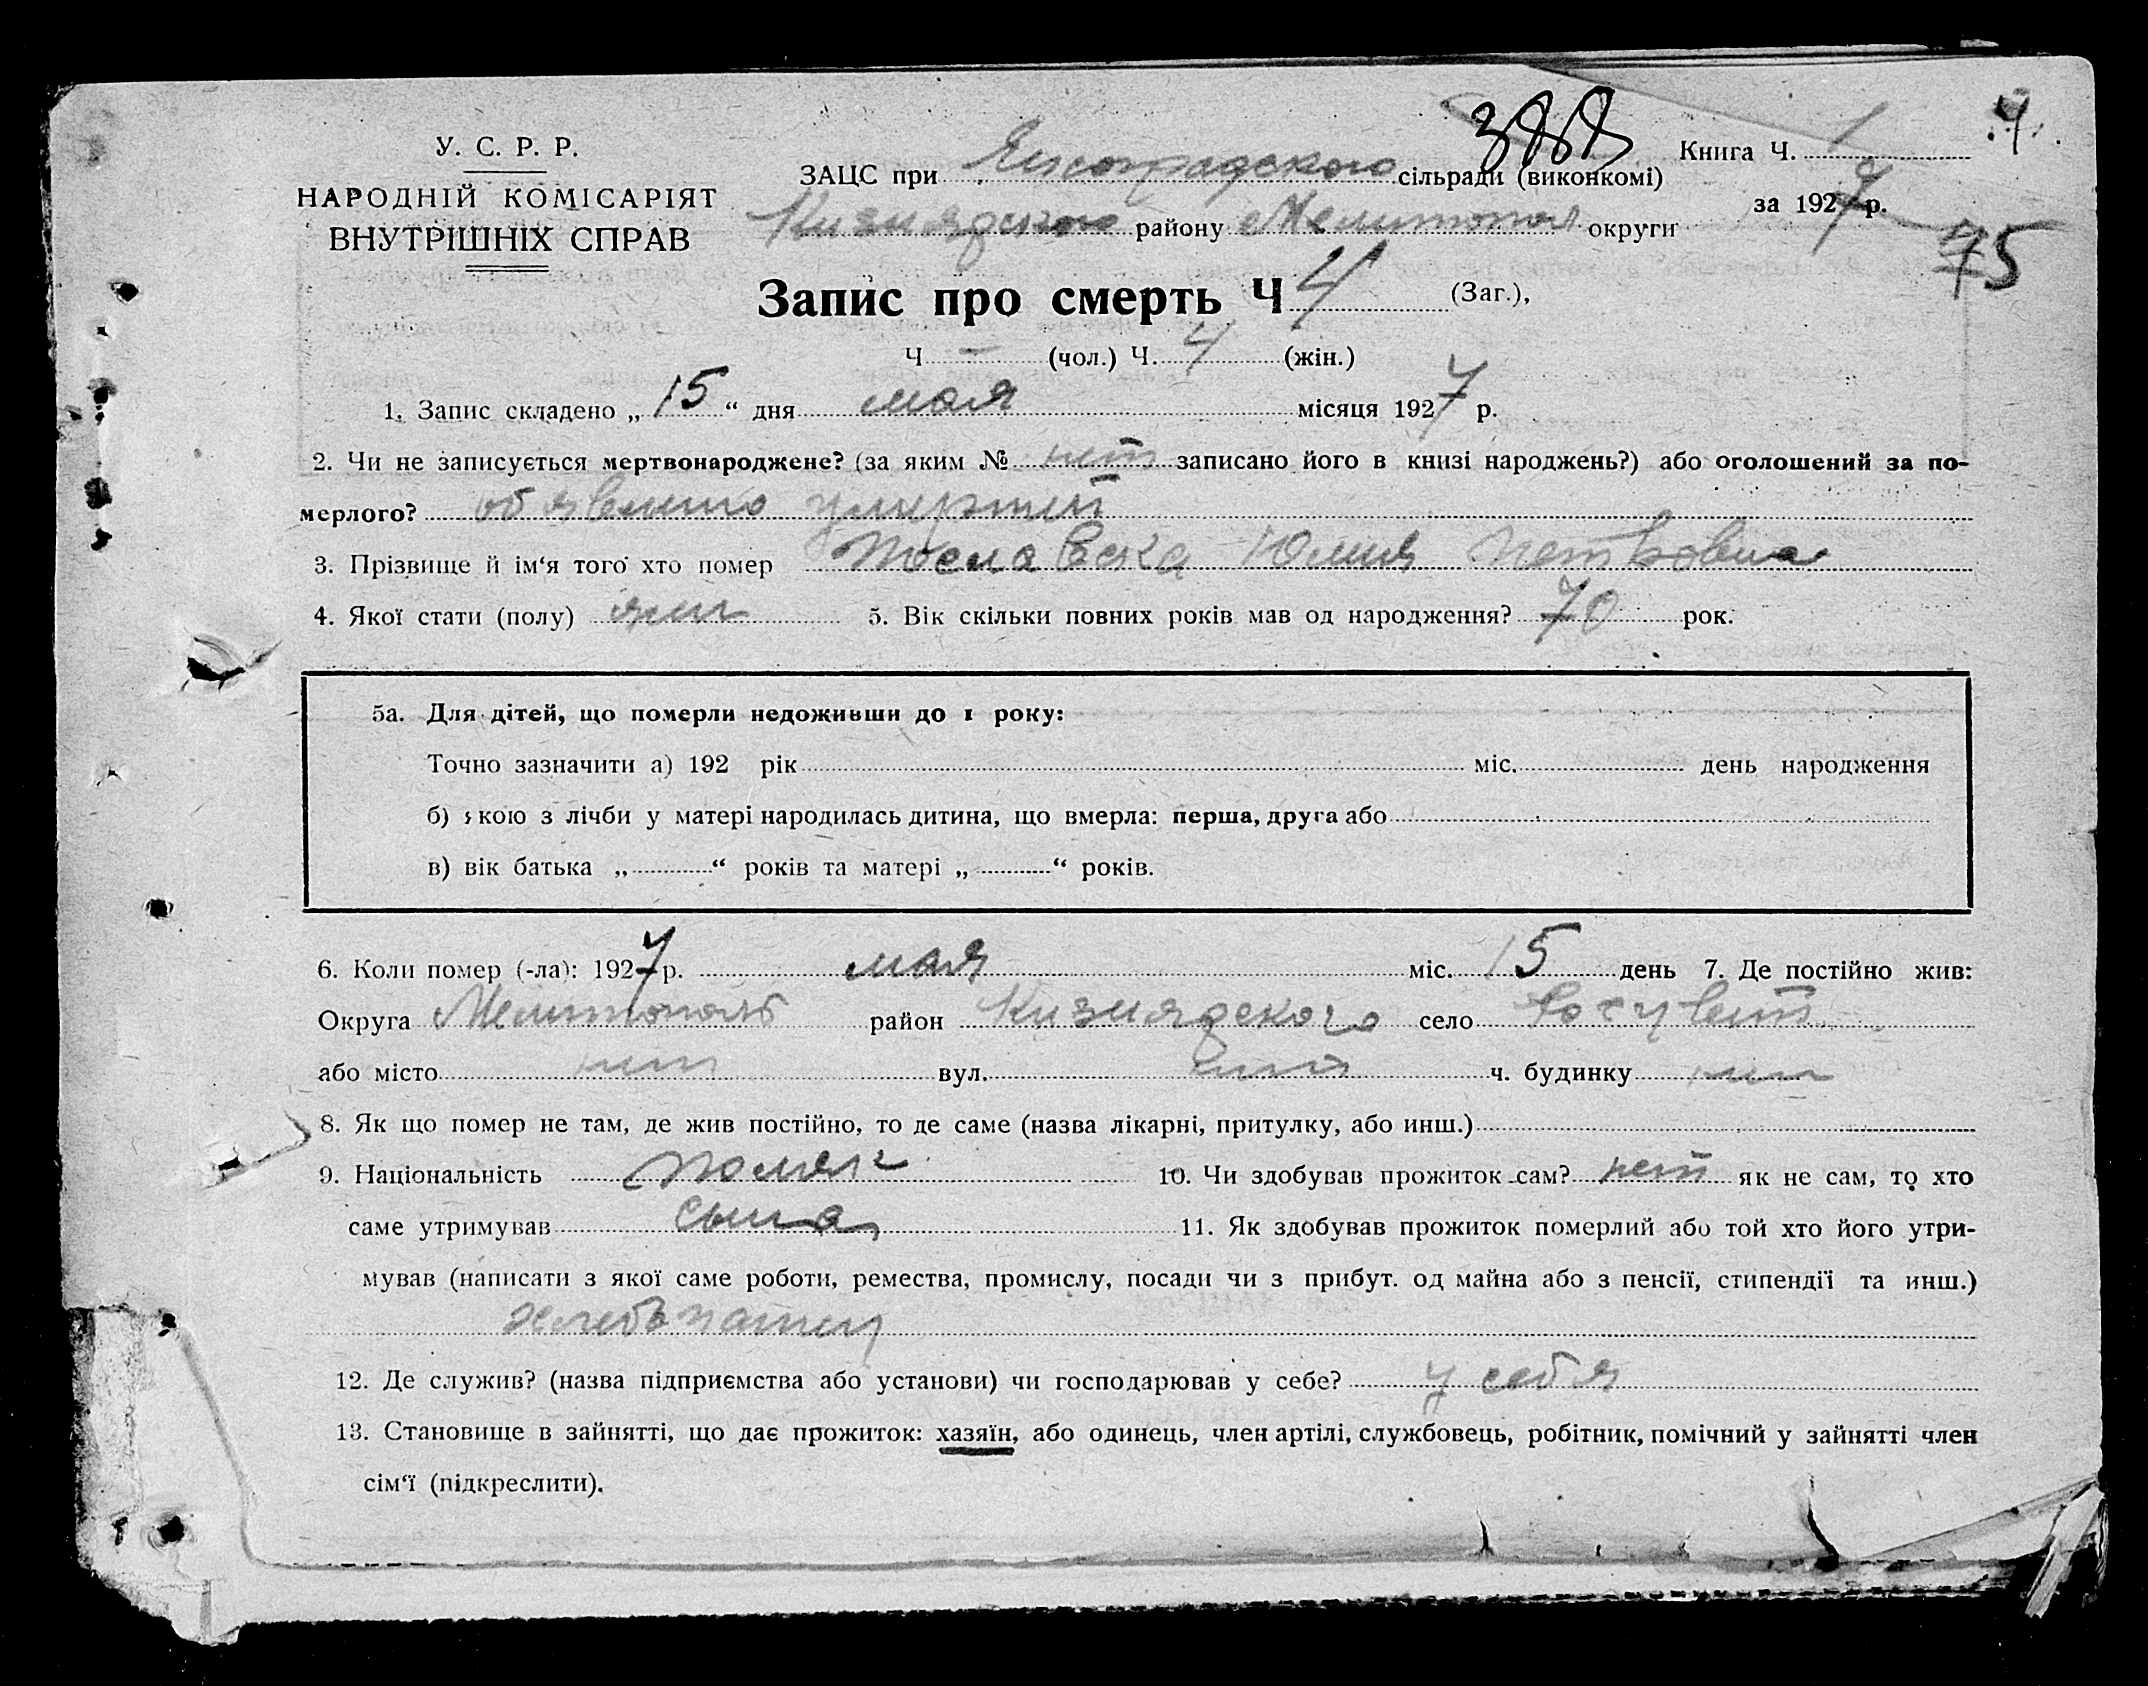 У. С. Р. Р.
НАРОДНІЙ КОМІСАРІЯТ
ВНУТРІШНІХ СПРАВ
ЗАЦС при сільради (виконкомі)
району Мелитопол округи
Книга Ч. 1
за 1927 р.
4
75
Запис про смерть Ч 4 (Заг.),
Ч — (чол.) Ч. 4 (жін.)
1. Запис складено „ 15 “ дня мая місяця 1927 р.
2. Чи не записується мертвонароджене? (за яким № нет записано його в книзі народжень?) або оголошений за по-
мерлого?
3. Прізвище й ім‘я того хто помер Юлия Петровна
4. Якої стати (полу) жен 5. Вік скільки повних років мав од народження? 70 рок.
5а. Для дітей, що померли недоживши до 1 року:
Точно зазначити а) 192 рік міс. день народження
б) якою з лічби у матері народилась дитина, що вмерла: перша, друга або
в) вік батька „ “ років та матері „ “ років.
6. Коли помер (-ла): 1927 р. мая міс. 15 день 7. Де постійно жив:
Округа Мелитополь район Кизиядского село
або місто нет вул. нет ч. будинку нет
8. Як що помер не там, де жив постійно, то де саме (назва лікарні, притулку, або инш.)
9. Національність поляк 10. Чи здобував прожиток сам? нет як не сам, то хто
саме утримував сына 11. Як здобував прожиток померлий або той хто його утри-
мував (написати з якої саме роботи, ремества, промислу, посади чи з прибут. од майна або з пенсії, стипендії та инш.)
12. Де служив? (назва підприємства або установи) чи господарював у себе? у себя
13. Становище в зайнятті, що дає прожиток: хазяїн, або одинець, член артілі, службовець, робітник, помічний у зайнятті член
сім‘ї (підкреслити).